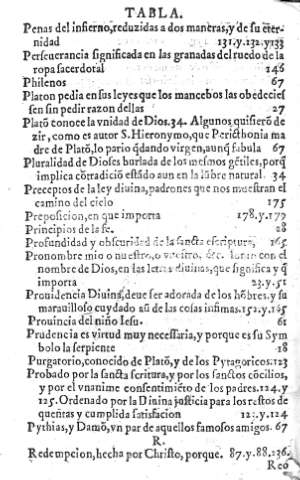 TABLA.
Penas del infierno, reduzidas a dos maneras, y de su eter-
nidad 131.y.132.y133
Perseuerancia significada en las granadas del ruedo de la
ropa sacerdotal 146
Philenos 67
Platon pedia en sus leyes que los mancebos las obedecies
sen sin pedir razon dellas 27
Platõ conoce la vnidad de Dios.34. Algunos quisierõ de
zir, como es autor S. Hieronymo, que Pericthonia ma
dre de Platõ, lo pario q̃dando virgen, aunq̃ fabula 67
Pluralidad de Dioses burlada de los mesmos gẽtiles, porq̃
implica cõtradiciõ estãdo aun en la lũbre natural. 34
Preceptos de la ley diuina, padrones que nos muestran el
camino del cielo 175
Preposicion, en que importa 178.y.179
Principios de la fe. 28
Profundidad y obscuridad de la sancta escriptura, 165
Pronombre mio o nuestro, o vuestro, &c. con el
nombre de Dios, en las letras diuinas, que significa y q̃
importa 23.y.51
Prouidencia Diuina, deue ser adorada de los hõbres, y su
marauilloso cuydado aũ de las cosas infimas.152.y.165
Prouincia del niño Iesu. 61
Prudencia es virtud muy necessaria, y porque es su Sym
bolo la serpiente 18
Purgatorio, conocido de Platõ, y de los Pytagoricos.123
Probado por la sancta scritura, y por los sanctos cõcilios,
y por el vnanime consentimiẽto de los padres.124.y
125. Ordenado por la Diuina justicia para los restos de
queñtas y cumplida satisfacion 12.y.124
Pythias, y Damõ, vn par de aquellos famosos amigos. 67
R.
Redempcion, hecha por Christo, porque. 87.y.88.136.
Reo